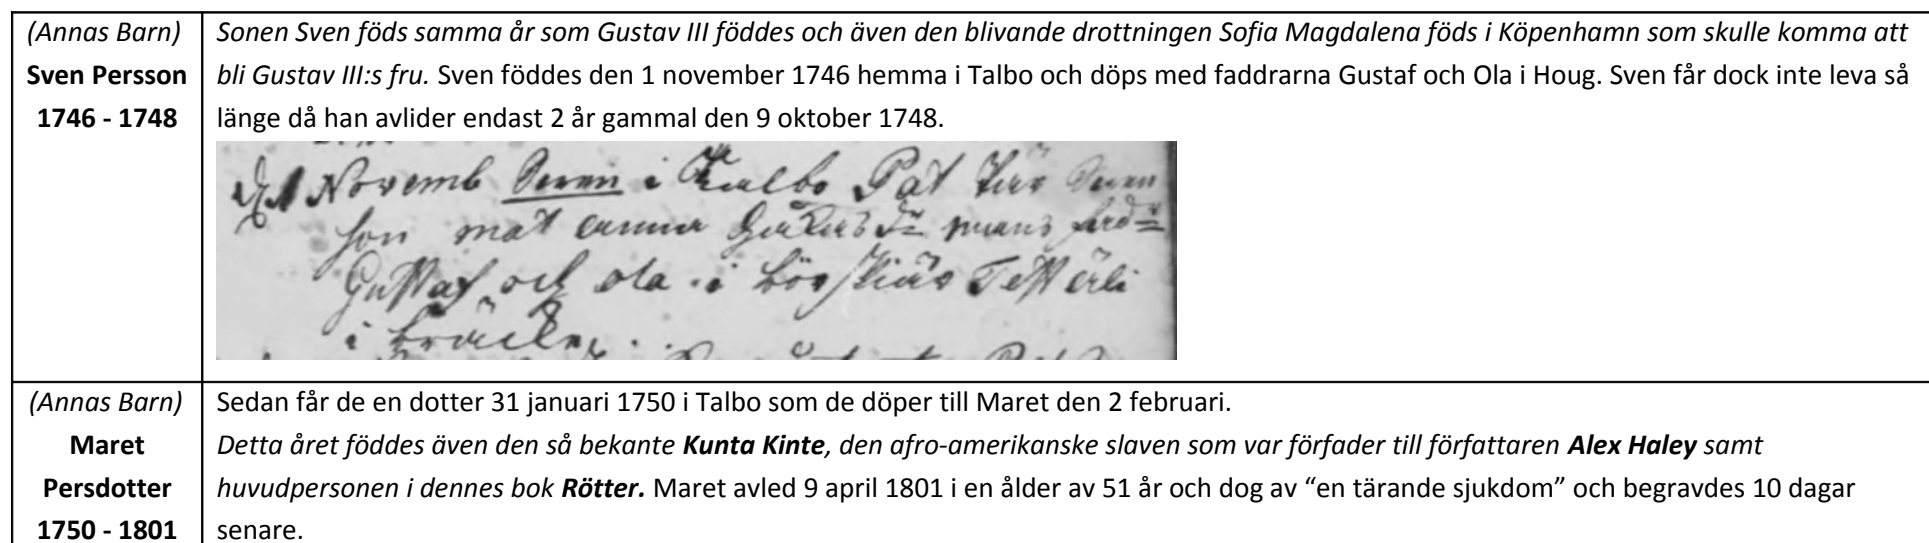 (Annas Barn)
Sven Persson
1746 - 1748
Sonen Sven föds samma år som Gustav III föddes och även den blivande drottningen Sofia Magdalena föds i Köpenhamn som skulle komma att
bli Gustav III:s fru. Sven föddes den 1 november 1746 hemma i Talbo och döps med faddrarna Gustaf och Ola i Houg. Sven får dock inte leva så
länge då han avlider endast 2 år gammal den 9 oktober 1748.
Novemb Sven i Talbo Pat
son mat anna
Gustaf och ola i
i
(Annas Barn)
Maret
Persdotter
1750 - 1801
Sedan får de en dotter 31 januari 1750 i Talbo som de döper till Maret den 2 februari.
Detta året föddes även den så bekante Kunta Kinte, den afro-amerikanske slaven som var förfader till författaren Alex Haley samt
huvudpersonen i dennes bok Rötter. Maret avled 9 april 1801 i en ålder av 51 år och dog av “en tärande sjukdom” och begravdes 10 dagar
senare.